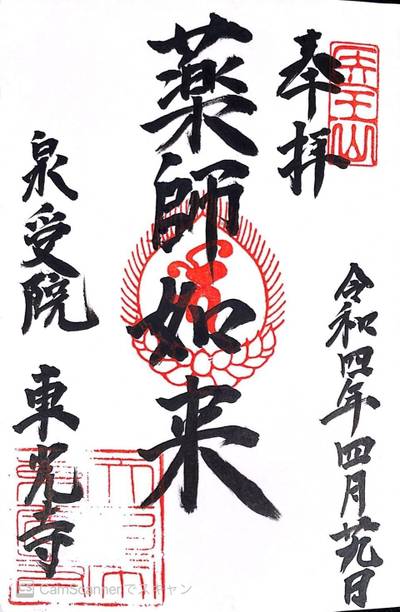 王山
奉拝
令和四年四月廿九日
薬師如来
泉受院 東光寺
CS CamScannerでスキャン